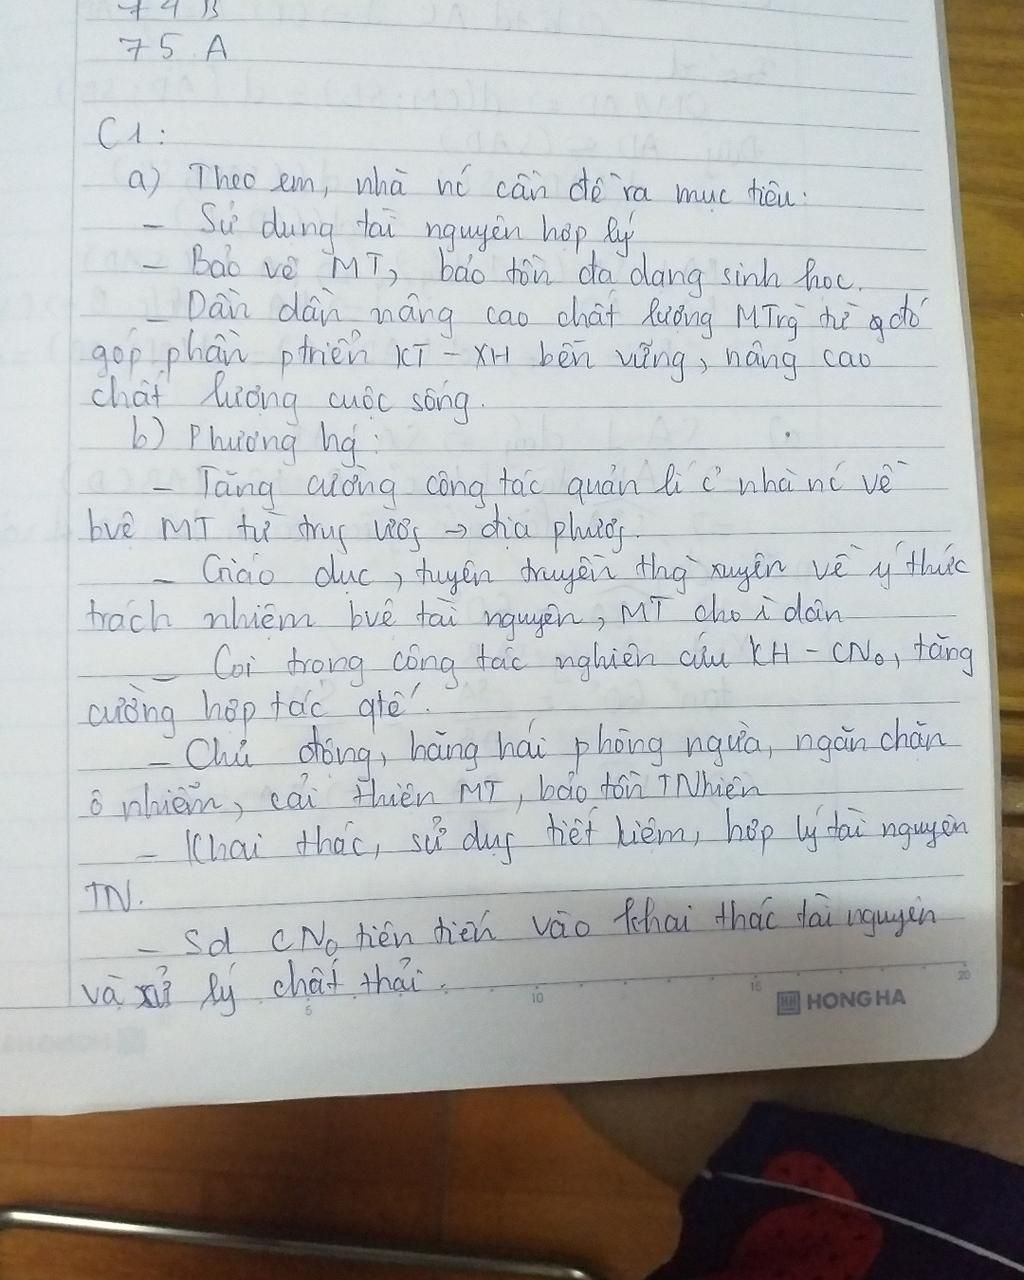 74 B
75 A
C1:
a) Theo em, nhà nć cần đề ra mục tiêu:
- Sử dụng tài nguyên hợp lý
- Bảo vệ MT, bảo tồn đa dạng sinh học.
- Dần dần nâng cao chất lượng MTrg từ đó
góp phần ptriển KT - XH bền vững, nâng cao
chất lượng cuộc sống.
b) Phương hg:
- Tăng cường công tác quản lí c̉ nhà nć về
bvệ MT từ trug ươg → địa phươg.
- Giáo dục, tuyên truyền thg̀ xuyên về ý thức
trách nhiệm bvệ tài nguyên, MT cho ì dân
- Coi trọng công tác nghiên cứu KH - CNo, tăng
cường hợp tác qtế.
- Chủ động, hăng hái phòng ngừa, ngăn chặn
ô nhiễm, cải thiện MT, bảo tồn TNhiên
- Khai thác, sử dụg tiết kiệm, hợp lý tài nguyên
TN.
- Sd CNo tiên tiến vào khai thác tài nguyên
và xử lý chất thải.
5 10 15 20
HH HONG HA